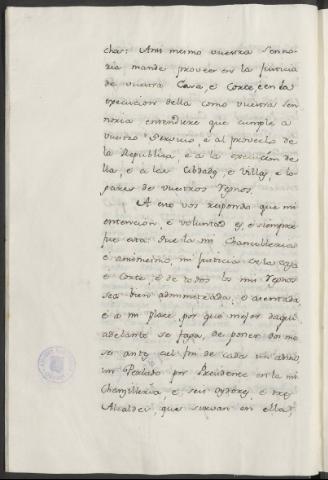 chas: Ami mesmo vuestra Senno-
ria mande proveer en la Justicia
de vuestra Casa, e Corte, e en la
execucion della como vuestra Sen
noria entendiere que cumple a
vuestro Servicio, e al provecho de
la Republica, e a la execucion de
lla, e a las Cibdades, e Villas, e lo
gares de vuestros Regnos.
A esto vos respondo que mi
entencion, e voluntad es, e siempre
fue esta: Que la mi Chancilleria
e ansimismo, mi Justicia en la casa
e Corte, e de todos los mis Regnos
sea bien administrada, e acentada,
e a mi place, por que mejor daqui
adelante se faga, de poner, do mo
se ante del fin de cada un anno,
un Perlado por Presidente en la mi
Chancilleria, e seis oydores, e tres
Alcaldes, que sirvan en ella,